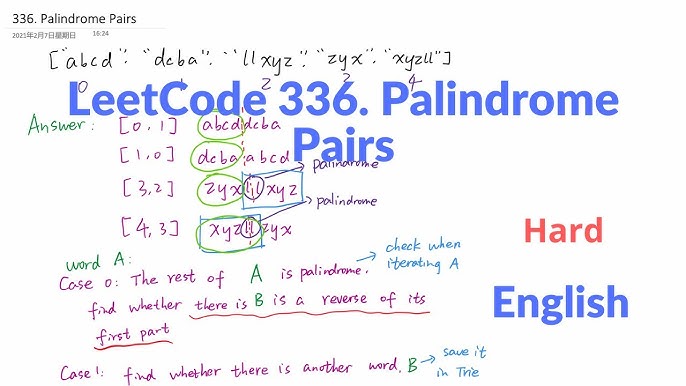 336. Palindrome Pairs
2021年2月7日星期日 16:24
["abcd", "dcba", "llxyz", "zyx", "xyzll"]
0 1 2 3 4
LeetCode 336. Palindrome
Pairs
Answer: [0,1] abcddcba
[1,0] dcbaabcd
palindrome
[3,2] zyxllxyz
palindrome
[4,3] xyzllzyx
Hard
word A:
check when
iterating A
Case 0: The rest of A is palindrome.
English
find whether there is B is a reverse of its
first part
Case 1: find whether there is another word. B
save it
in Trie